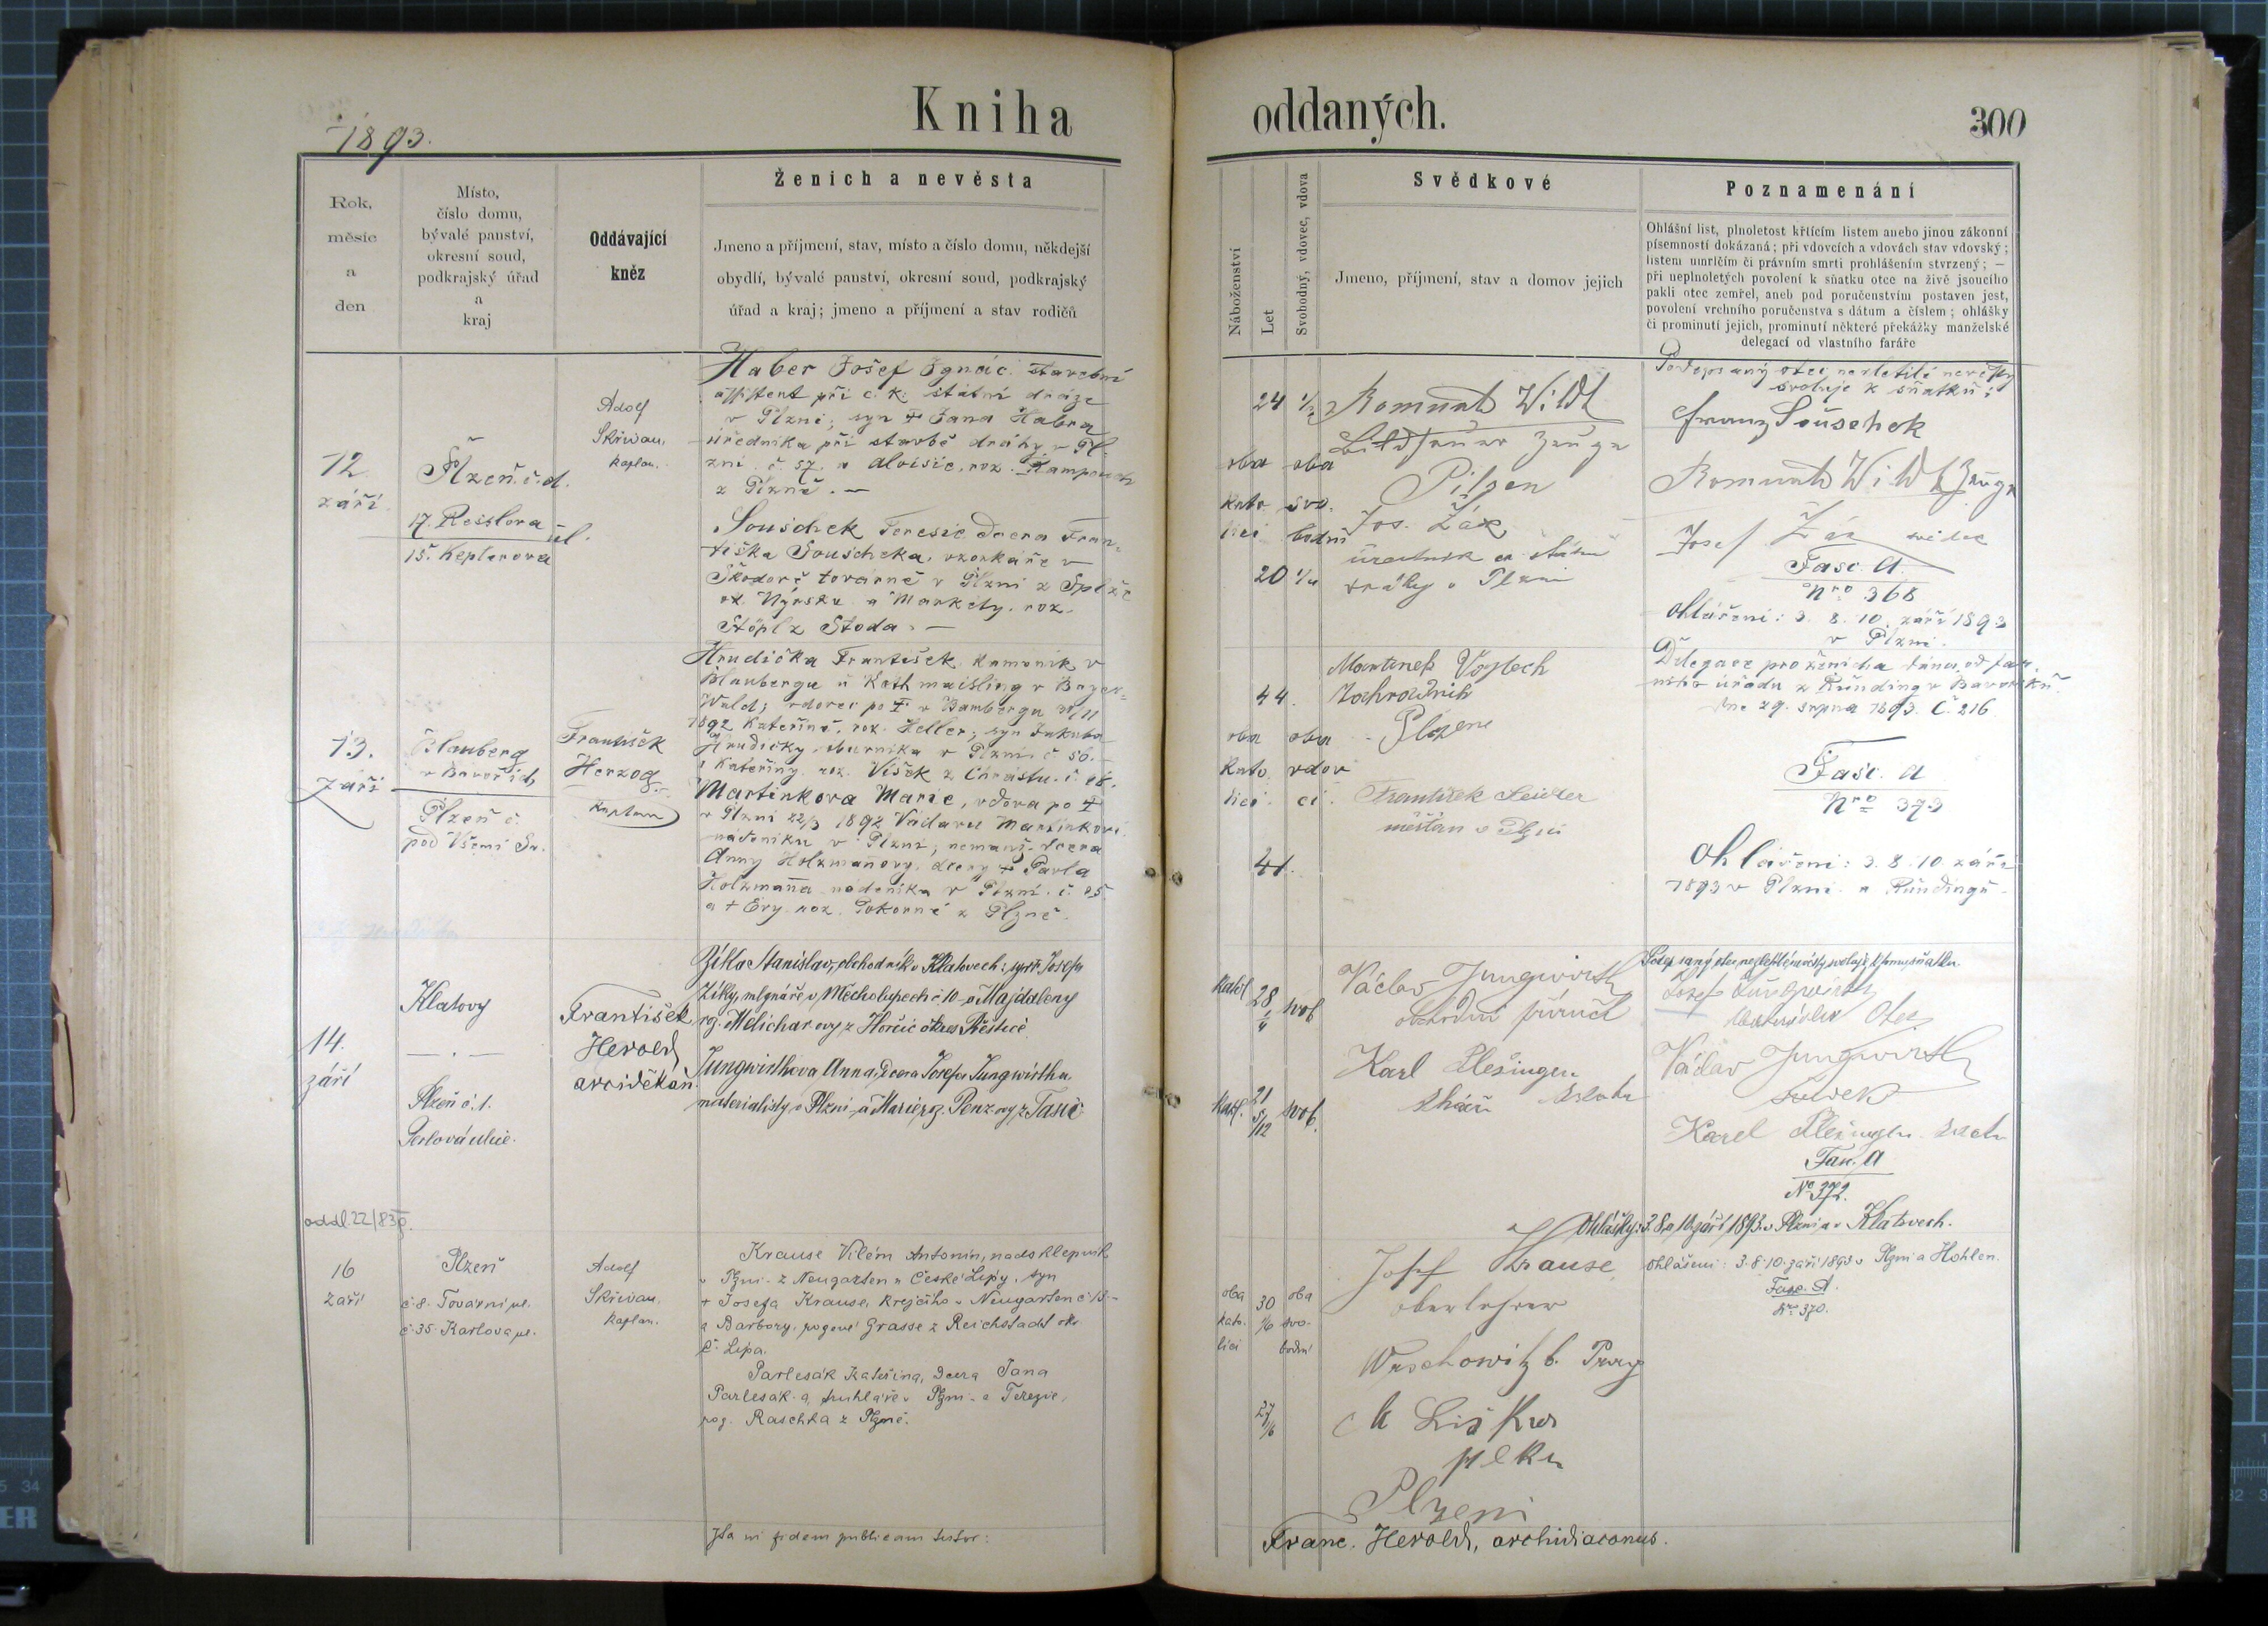 1893.
Kniha oddaných.
300
Rok,
měsíc
a
den
Místo,
číslo domu,
bývalé panství,
okresní soud,
podkrajský úřad
a
kraj
Oddávající
kněz
Ženich a nevěsta
Jmeno a příjmení, stav, místo a číslo domu, někdejší
obydlí, bývalé panství, okresní soud, podkrajský
úřad a kraj; jmeno a příjmení a stav rodičů
Náboženství
Let
Svobodný, vdovec, vdova
Svědkové
Jmeno, příjmení, stav a domov jejich
Poznamenání
Ohlášní list, plnoletost křtícím listem anebo jinou zákonní
písemností dokázaná; při vdovcích a vdovách stav vdovský;
listem umrlčím či právním smrti prohlášením stvrzený; —
při neplnoletých povolení k sňatku otce na živě jsoucího
pakli otec zemřel, aneb pod poručenstvím postaven jest,
povolení vrchního poručenstva s dátum a číslem; ohlášky
či prominutí jejich, prominutí některé překážky manželské
delegací od vlastního faráře
12
září
Plzeň č. d.
17. Resslova
ul.
15. Keplerova
Adolf
Skřivan,
kaplan.
Haber Josef Ignác. stavební
assistent při c. k. státní dráze
v Plzni; syn † Jana Habra
úředníka při stavbě dráhy v Pl-
zni č. 57. a Aloisie, roz.
z Plzně. —
Souschek Teresie dcera Fran-
tiška Souscheka, vzorkaře v
Škodově továrně v Plzni z
ok. Nýrsko a Markéty. roz.
Stöpl z Stoda. —
oba
kato-
líci
24 1/2
20 1/4
oba
svo-
bodní
Romuald Wildt
Bildhauer Zeuge
Pilsen
Jos. Žák
úředník státní
dráhy v Plzni
Podepsaný otec nezletilé nevěsty
svoluje k sňatku:
Franz Souschek
Romuald Wildt Zeuge
Josef Žák svědek
Fasc. A.
Nro 368
ohlášeni: 3. 8. 10. září 1893
v Plzni.
13.
září
Blauberg
v Bavořích
Plzeň č.
pod Všemi Sv.
František
Herzog
kaplan
Hrudička František kameník v
Blaubergu u Kothmaisling v Bayer-
Wald; vdovec po † v Bambergu 30/11
1892 Kateřině, roz. Heller; syn Jakuba
Hrudičky v Plzni č. 56.
a Kateřiny roz. Víšek z Chrástu. č. 26.
Martinkova Marie, vdova po †
v Plzni 22/3 1892 Václavu Martinkovi
nádeníku v Plzni; nemanž. dcera
Anny Holzmanovy, dcery † Pavla
Holzmanna nádeníka v Plzni. č. 25
a † Evy roz. Pokorné z Plzně.
oba
kato
líci.
44.
41.
oba
vdov
ci.
Martinek Vojtech
Zahradník
Plzen
František Seidler
měšťan v Plzni
Delegace pro ženicha dána od far-
ního úřadu z Runding v Bavorsku
dne 29. srpna 1893. Č. 216
Fasc. A
Nro 373
ohlášeni: 3. 8. 10 září
1893 v Plzni a Rundingu
14.
září
Klatovy
— . —
Plzeň č. 1.
Perlová ulice.
František
Herold
arciděkan.
Zíka Stanislav, obchodník v Klatovech; syn † Josefa
Zíky, mlynáře v Měcholupech č 10 a Majdaleny
roz. Melicharovy z Horčic okres Přeštice.
Jungwirthova Anna, dcera Josefa Jungwirtha
materialisty v Plzni a Marie roz. Penzovy z
Kathl.
28
svob.
Kath.
21
5/12
svob.
Václav Jungwirth
obchodní příručí
Karl Plesinger
Podepsaný otec nezletilé nevěsty svoluje k tomu sňatku.
Josef Jungwirth
otec
Václav Jungwirth
svědek
Karel Plesinger
Fasc. A
No 372.
Ohlášky: 3. 8. a 10. září 1893 v Plzni a v Klatovech.
oddl. 22/835.
16
září
Plzeň
č. 8. Tovární ul.
č. 35. Karlova ul.
Adolf
Skřivan,
kaplan.
Krause Vilém Antonín, nadsklepník
v Plzni - z Neugarten u České Lípy, syn
† Josefa Krause, krejčího v Neugarten č. 13 -
a Barbory, rozené Grasse z Reichstadt okr.
Č. Lípa.
Parlesák Kateřina, dcera Jana
Parlesák-a, truhláře v Plzni - a Terezie,
roz. Raschka z Plzně.
oba
kato-
líci
30
1/6
27
1/6
oba
svo-
bodni
Josef Krause
oberlehrer
Wrschowitz b. Prag
Plzeni
Ohlášeni: 3. 8. 10. září 1893 v Plzni a Hohlen.
Fasc. A.
Nro 370.
Ita in fidem publicam testor:
Franc. Herold, archidiaconus.